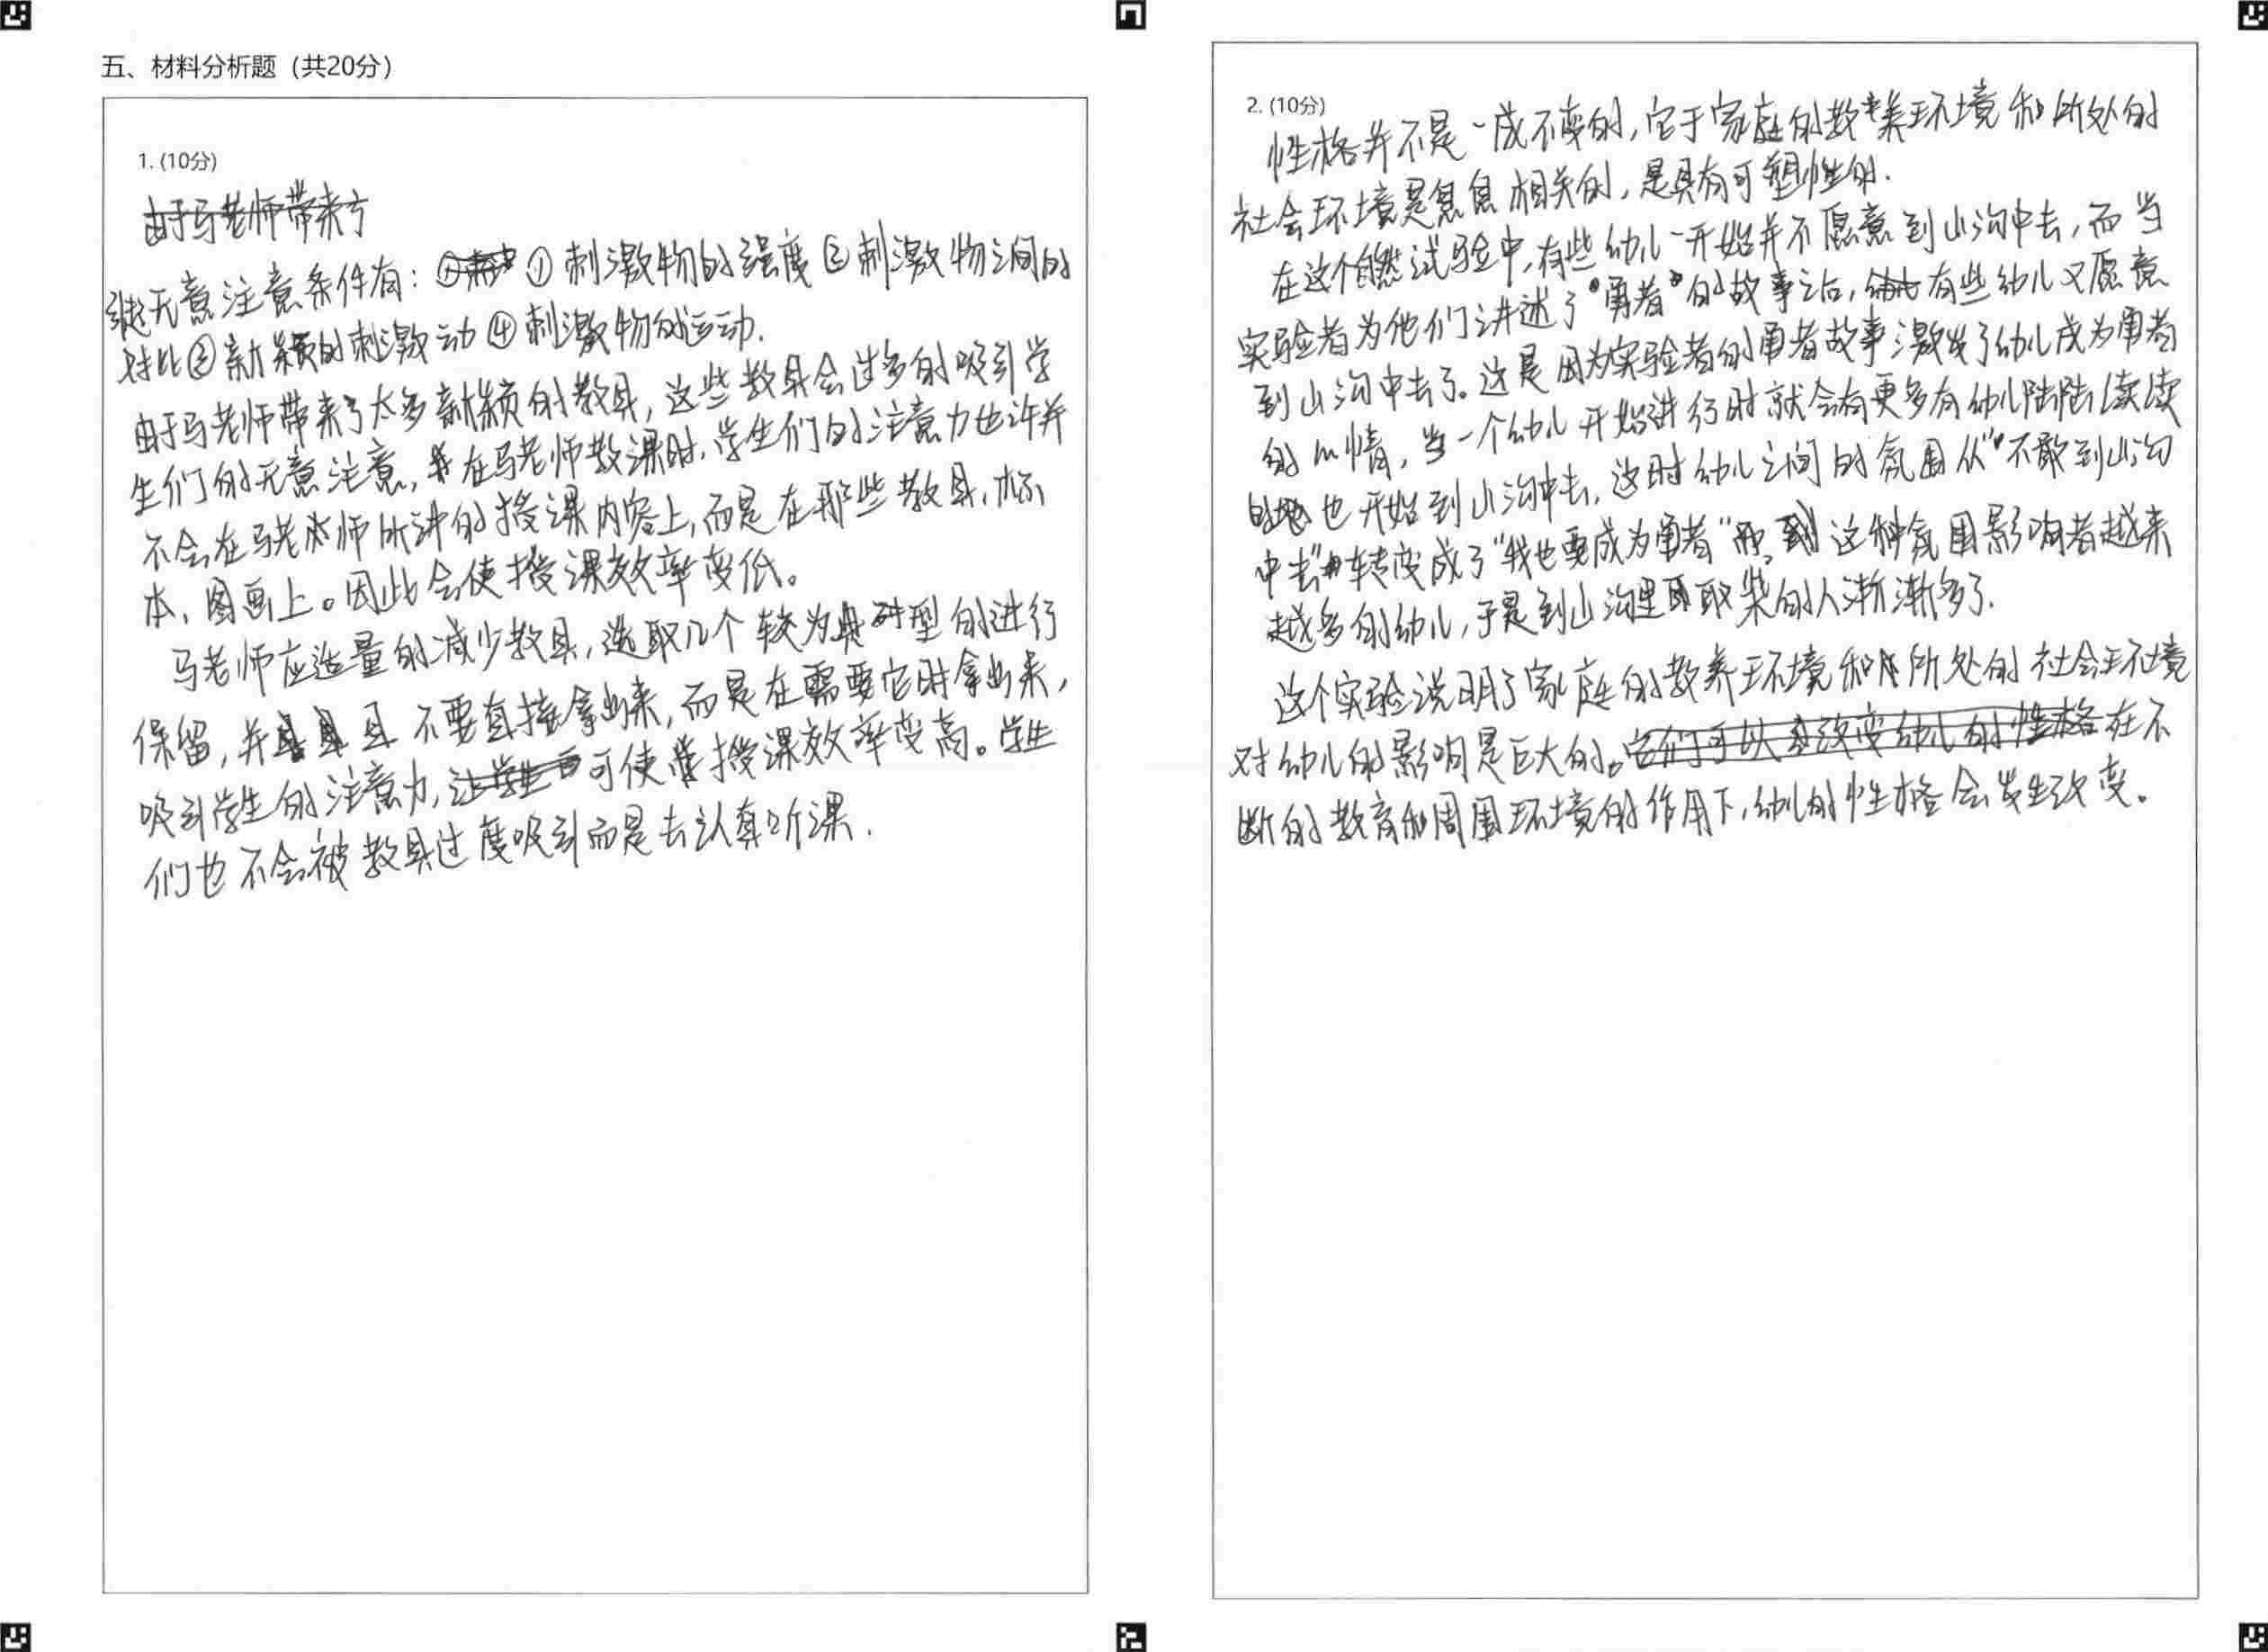 五、材料分析题（共20分）
1. (10分)
由于马老师带来亏
引起无意注意条件有：① ①刺激物的强度②刺激物之间的
对比③新颖的刺激动④刺激物的运动.
由于马老师带来了太多新颖的教具，这些教具会过多的吸引学
生们的无意注意，在马老师教课时，学生们的注意力也许并
不会在马老师所讲的授课内容上，而是在那些教具，标
本，图画上。因此会使授课效率变低。
马老师应适量的减少教具，选取几个较为典型的进行
保留，并且不要直接拿出来，而是在需要它时拿出来，
吸引学生的注意力，让学生可使授课效率变高。学生
们也不会被教具过度吸引而是去认真听课.
2. (10分)
性格并不是一成不变的，它于家庭的教养环境和所处的
社会环境是息息相关的，是具有可塑性的.
在这个自然试验中，有些幼儿一开始并不愿意到山沟中去，而当
实验者为他们讲述了“勇者”的故事之后，有些幼儿又愿意
到山沟中去了。这是因为实验者的勇者故事激发了幼儿成为勇者
的心情，当一个幼儿开始进行时就会有更多有幼儿陆陆续续
的也开始到山沟中去，这时幼儿之间的氛围从“不敢到山沟
中去”转变成了“我也要成为勇者”这种氛围影响者越来
越多的幼儿，于是到山沟里取柴的人渐渐多了.
这个实验说明了家庭的教养环境和所处的社会环境
对幼儿的影响是巨大的。它们可以改变幼儿的性格在不
断的教育和周围环境的作用下，幼儿的性格会发生改变。